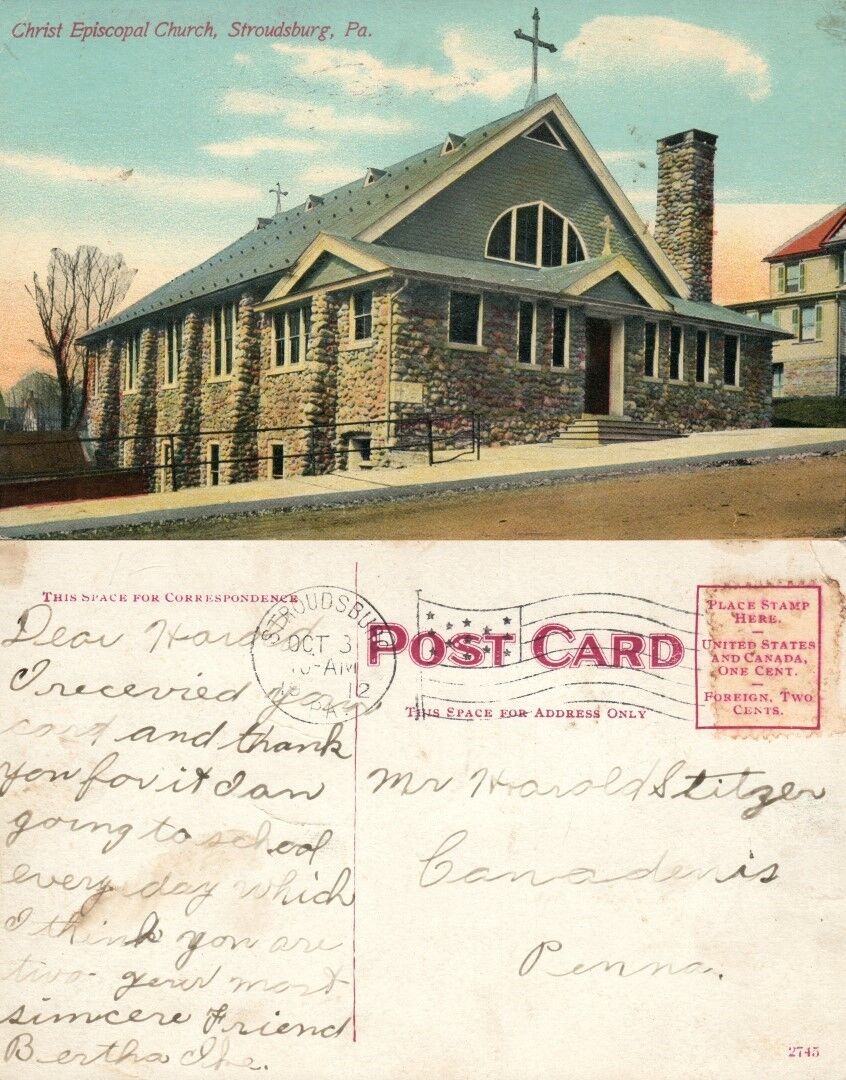 Christ Episcopal Church, Stroudsburg, Pa.
THIS SPACE FOR CORRESPONDENCE
STROUDSBURG
OCT 3
10-AM
12
PA.
POST CARD
THIS SPACE FOR ADDRESS ONLY
PLACE STAMP
HERE.
UNITED STATES
AND CANADA,
ONE CENT.
FOREIGN, TWO
CENTS.
Dear Harold
I recevied your
card and thank
you for it I am
going to school
every day which
I think you are
two your most
simcere Friend
Bertha
Mr Harold Stitzer
Canadenis
Penna.
2745